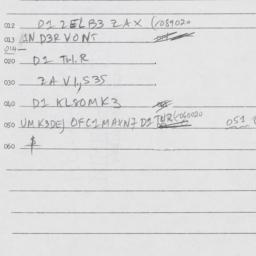 012 D1 2ELB3 ZAX (089020
013 IN D3R VONT
014
020 D1 TH.R
030 ZA V1,S3S
040 D1 KL80MK3
050 UMK3DEJ OFC1MAXN7 D1 (060020 051
060 $